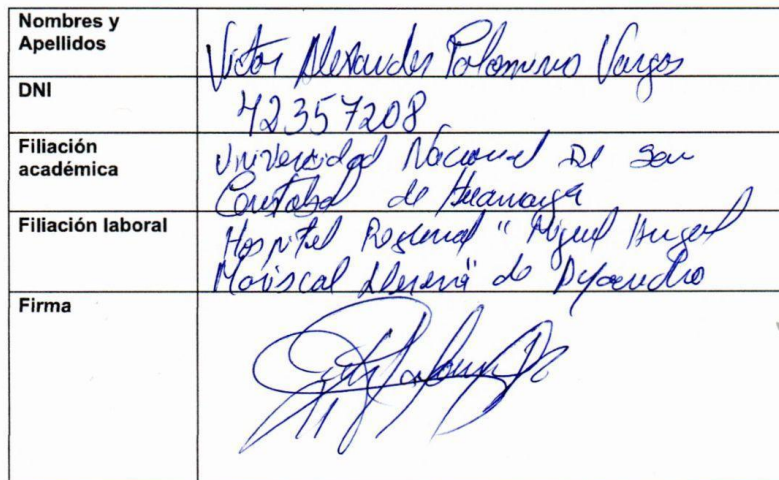 Nombres y
Apellidos
Victor Alexander Palomino Vargas
DNI
42357208
Filiación
académica
Universidad Nacional de San
Cristobal de Huamanga
Filiación laboral
Hospital Regional "Miguel Angel
Mariscal Llerena" de Ayacucho
Firma